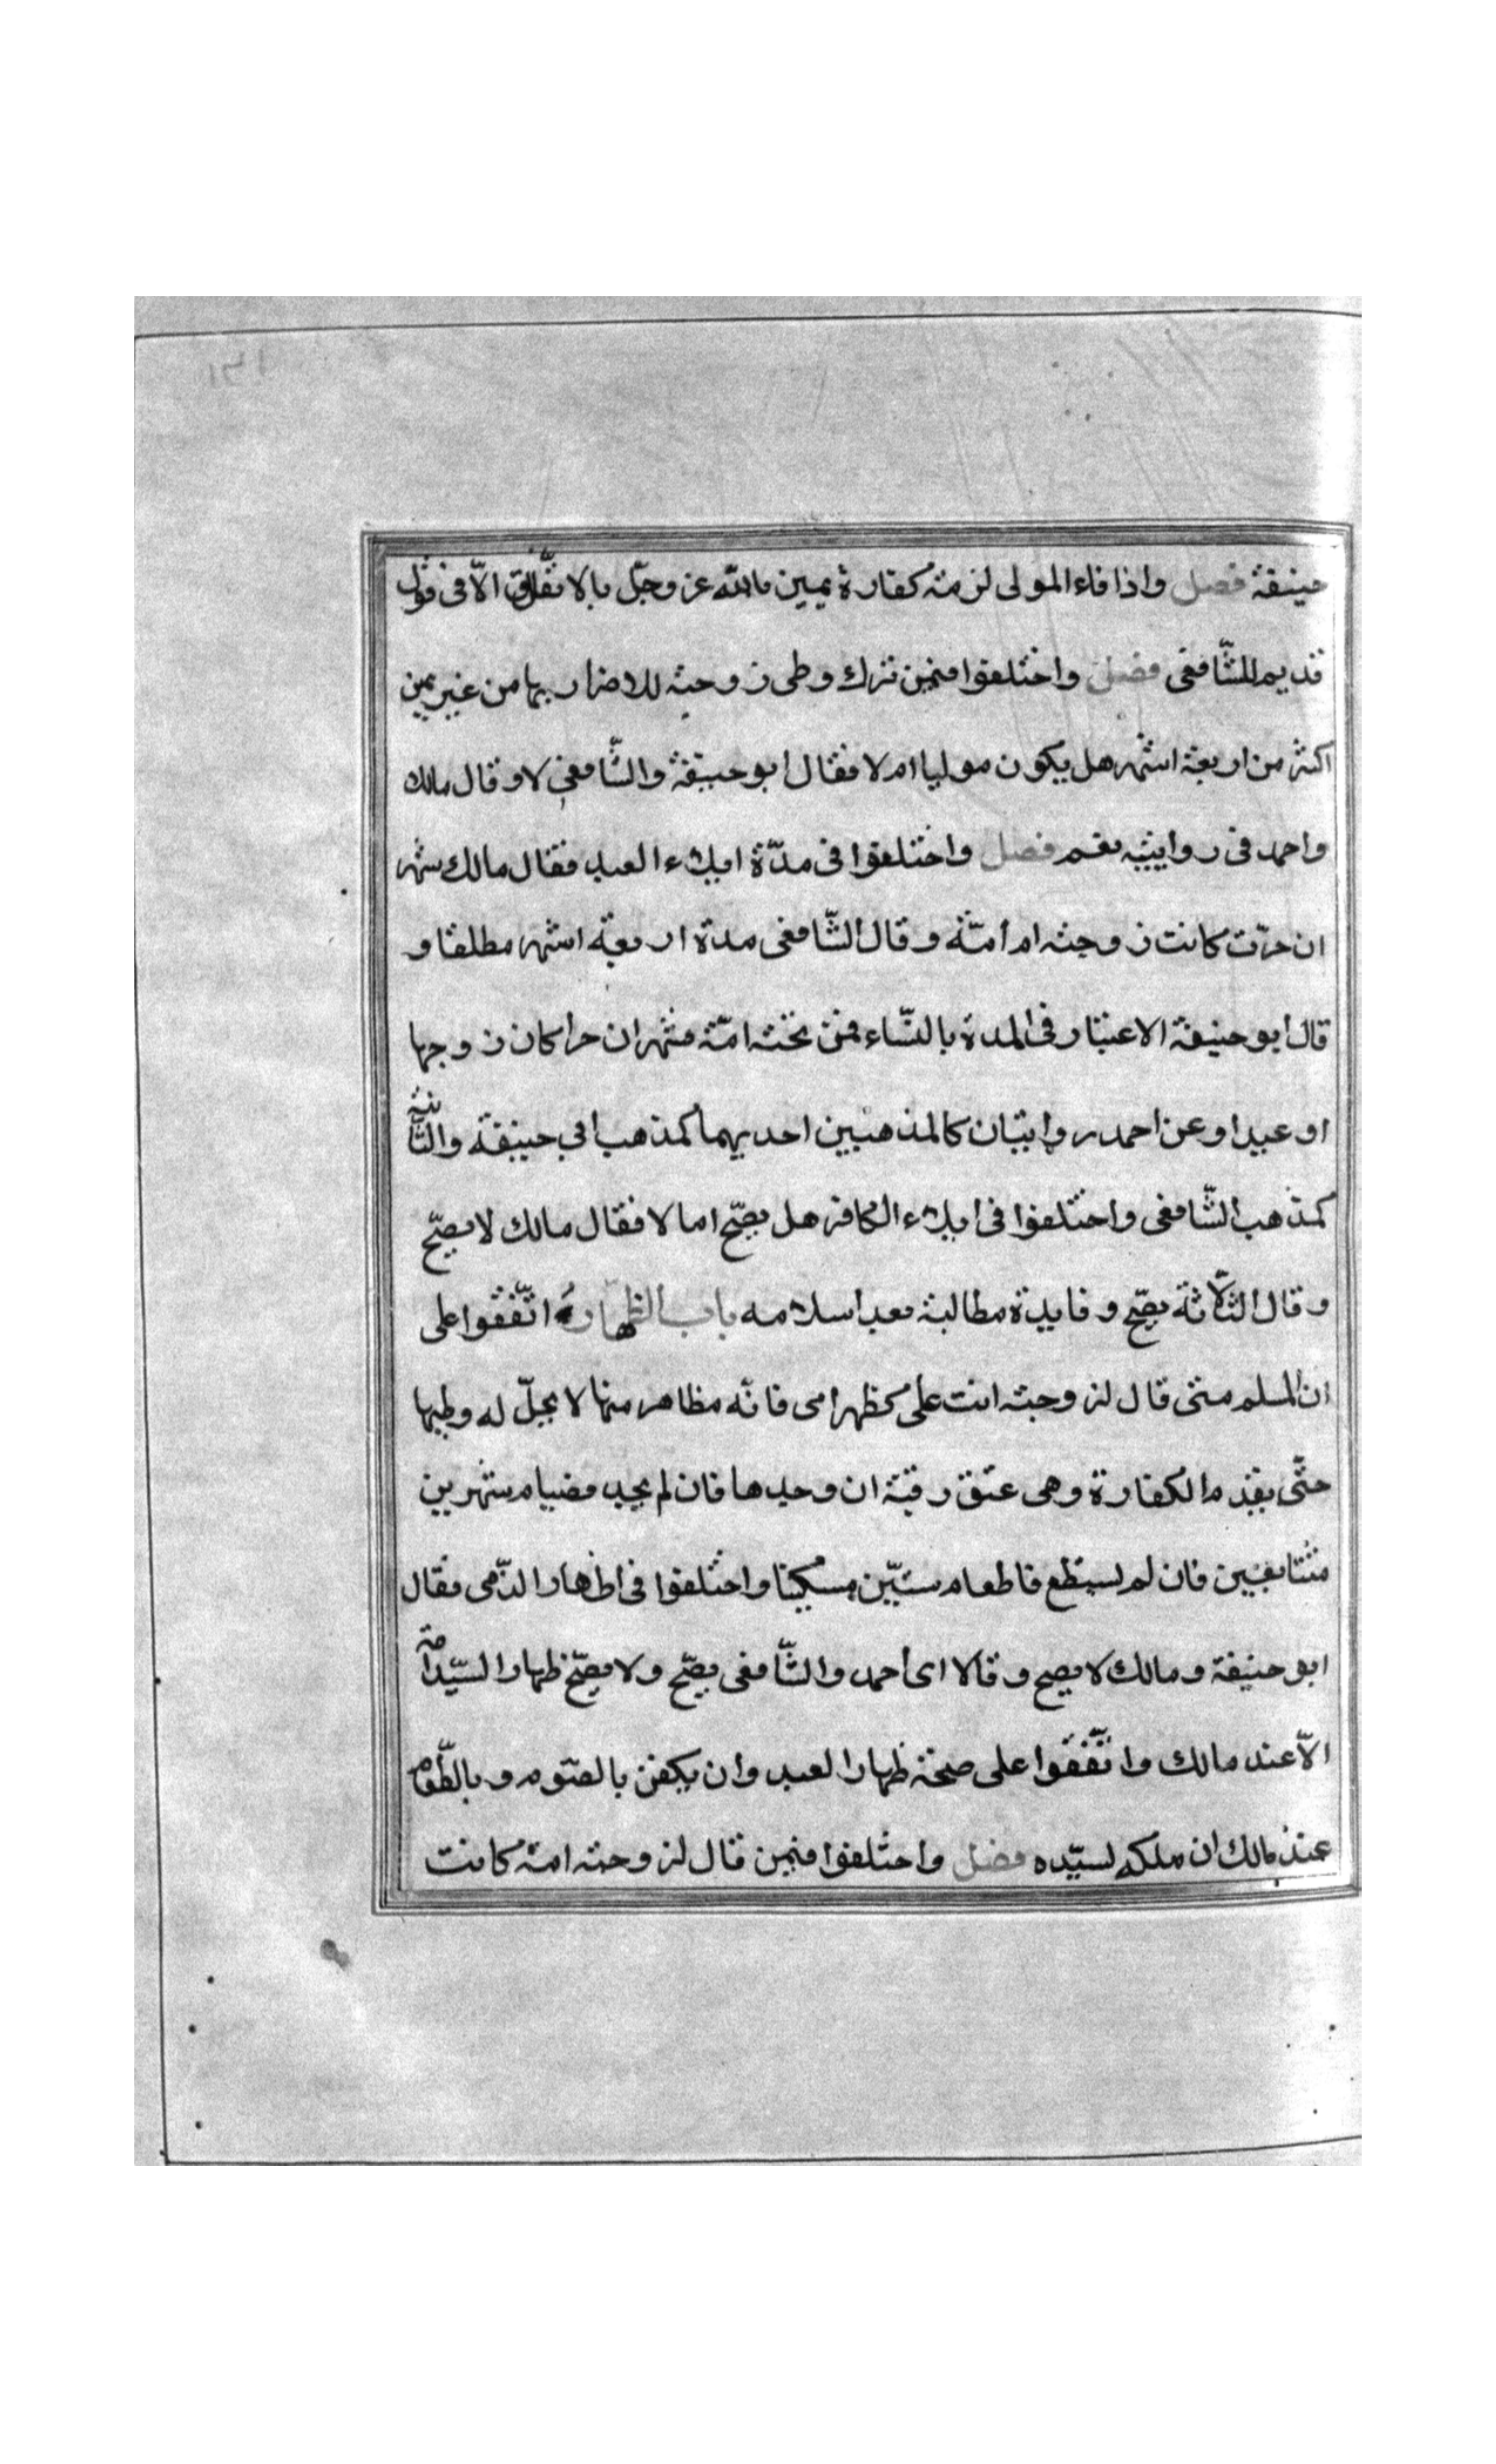 ١٣١
حنيفة فصل واذا فاء المولى لزمته كفارة يمين بالله عز وجلّ بالاتّفاق الّا فى قول
قديم للشّافعى فصل واختلفوا فيمن ترك وطى زوجته للاضرار بها من غير يمين
اكثر من اربعة اشهر هل يكون موليا ام لا فقال ابو حنيفة والشّافعى لا وقال مالك
واحمد فى روايتيه نعم فصل واختلفوا فى مدّة ايلاء العبد فقال مالك شهر
ان حرّت كانت زوجته ام امّته وقال الشّافعى مدة اربعة اشهر مطلقا و
قال ابو حنيفة الاعتبار فى المدة بالنّساء فمن تحته امّة فشهران حرا كان زوجها
او عبدا وعن احمد روايتان كالمذهبين احديهما كمذهب ابي حنيفة والثّانية
كمذهب الشّافعى واختلفوا فى ايلاء الكافر هل يصحّ اما لا فقال مالك لا يصحّ
وقال الثّلاثة يصحّ وفايدة مطالبة بعد اسلامه باب الظهار اتّفقوا على
ان المسلم متى قال لزوجته انت علىّ كظهر امى فانّه مظاهر منها لا يحلّ له وطيها
حتّى يقدم الكفارة وهى عتق رقبة ان وجدها فان لم يجد فصيام شهرين
متتابعين فان لم يستطع فاطعام ستّين مسكينا واختلفوا فى اظهار الذّمى فقال
ابو حنيفة ومالك لا يصح وقالا اى احمد والشّافعى يصحّ ولا يصحّ ظهار السّيّد امته
الّا عند مالك واتّفقوا على صحّة ظهار العبد وان يكفر بالصّوم وبالطّعام
عند مالك ان ملكه لسيّده فصل واختلفوا فيمن قال لزوجته امة كانت